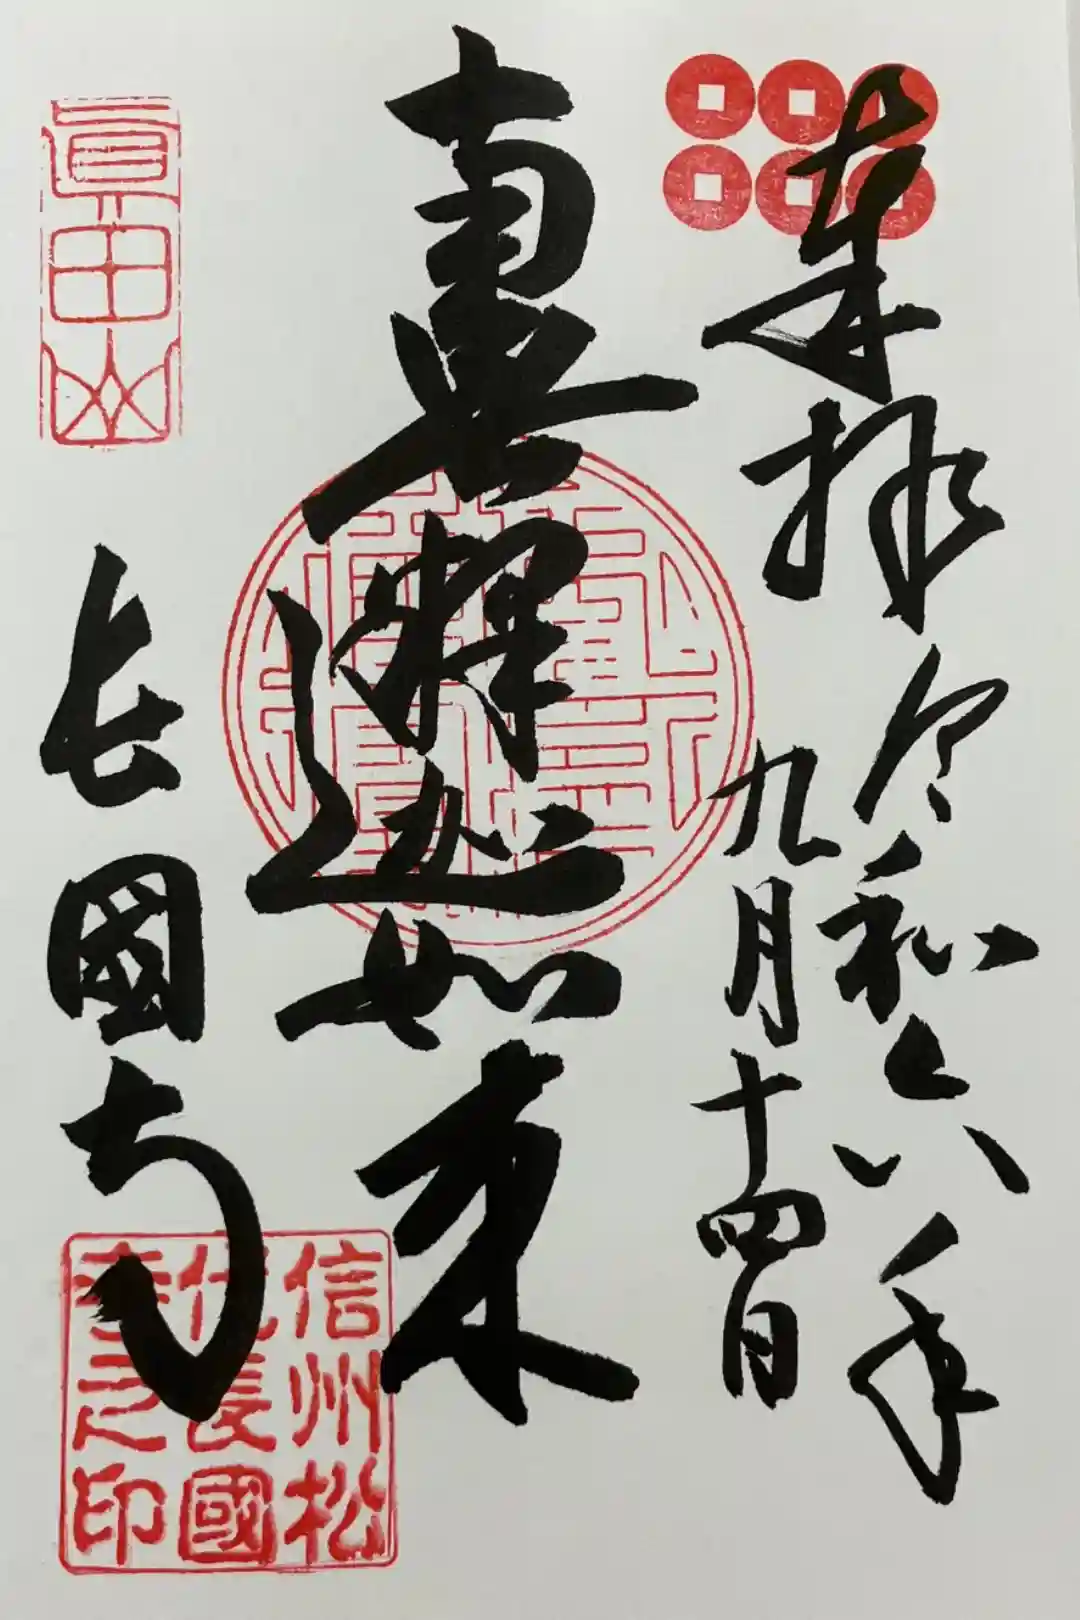 奉拝
令和六年
九月十四日
真田山
長國寺
信州松
代長國
寺之印
釋迦如来